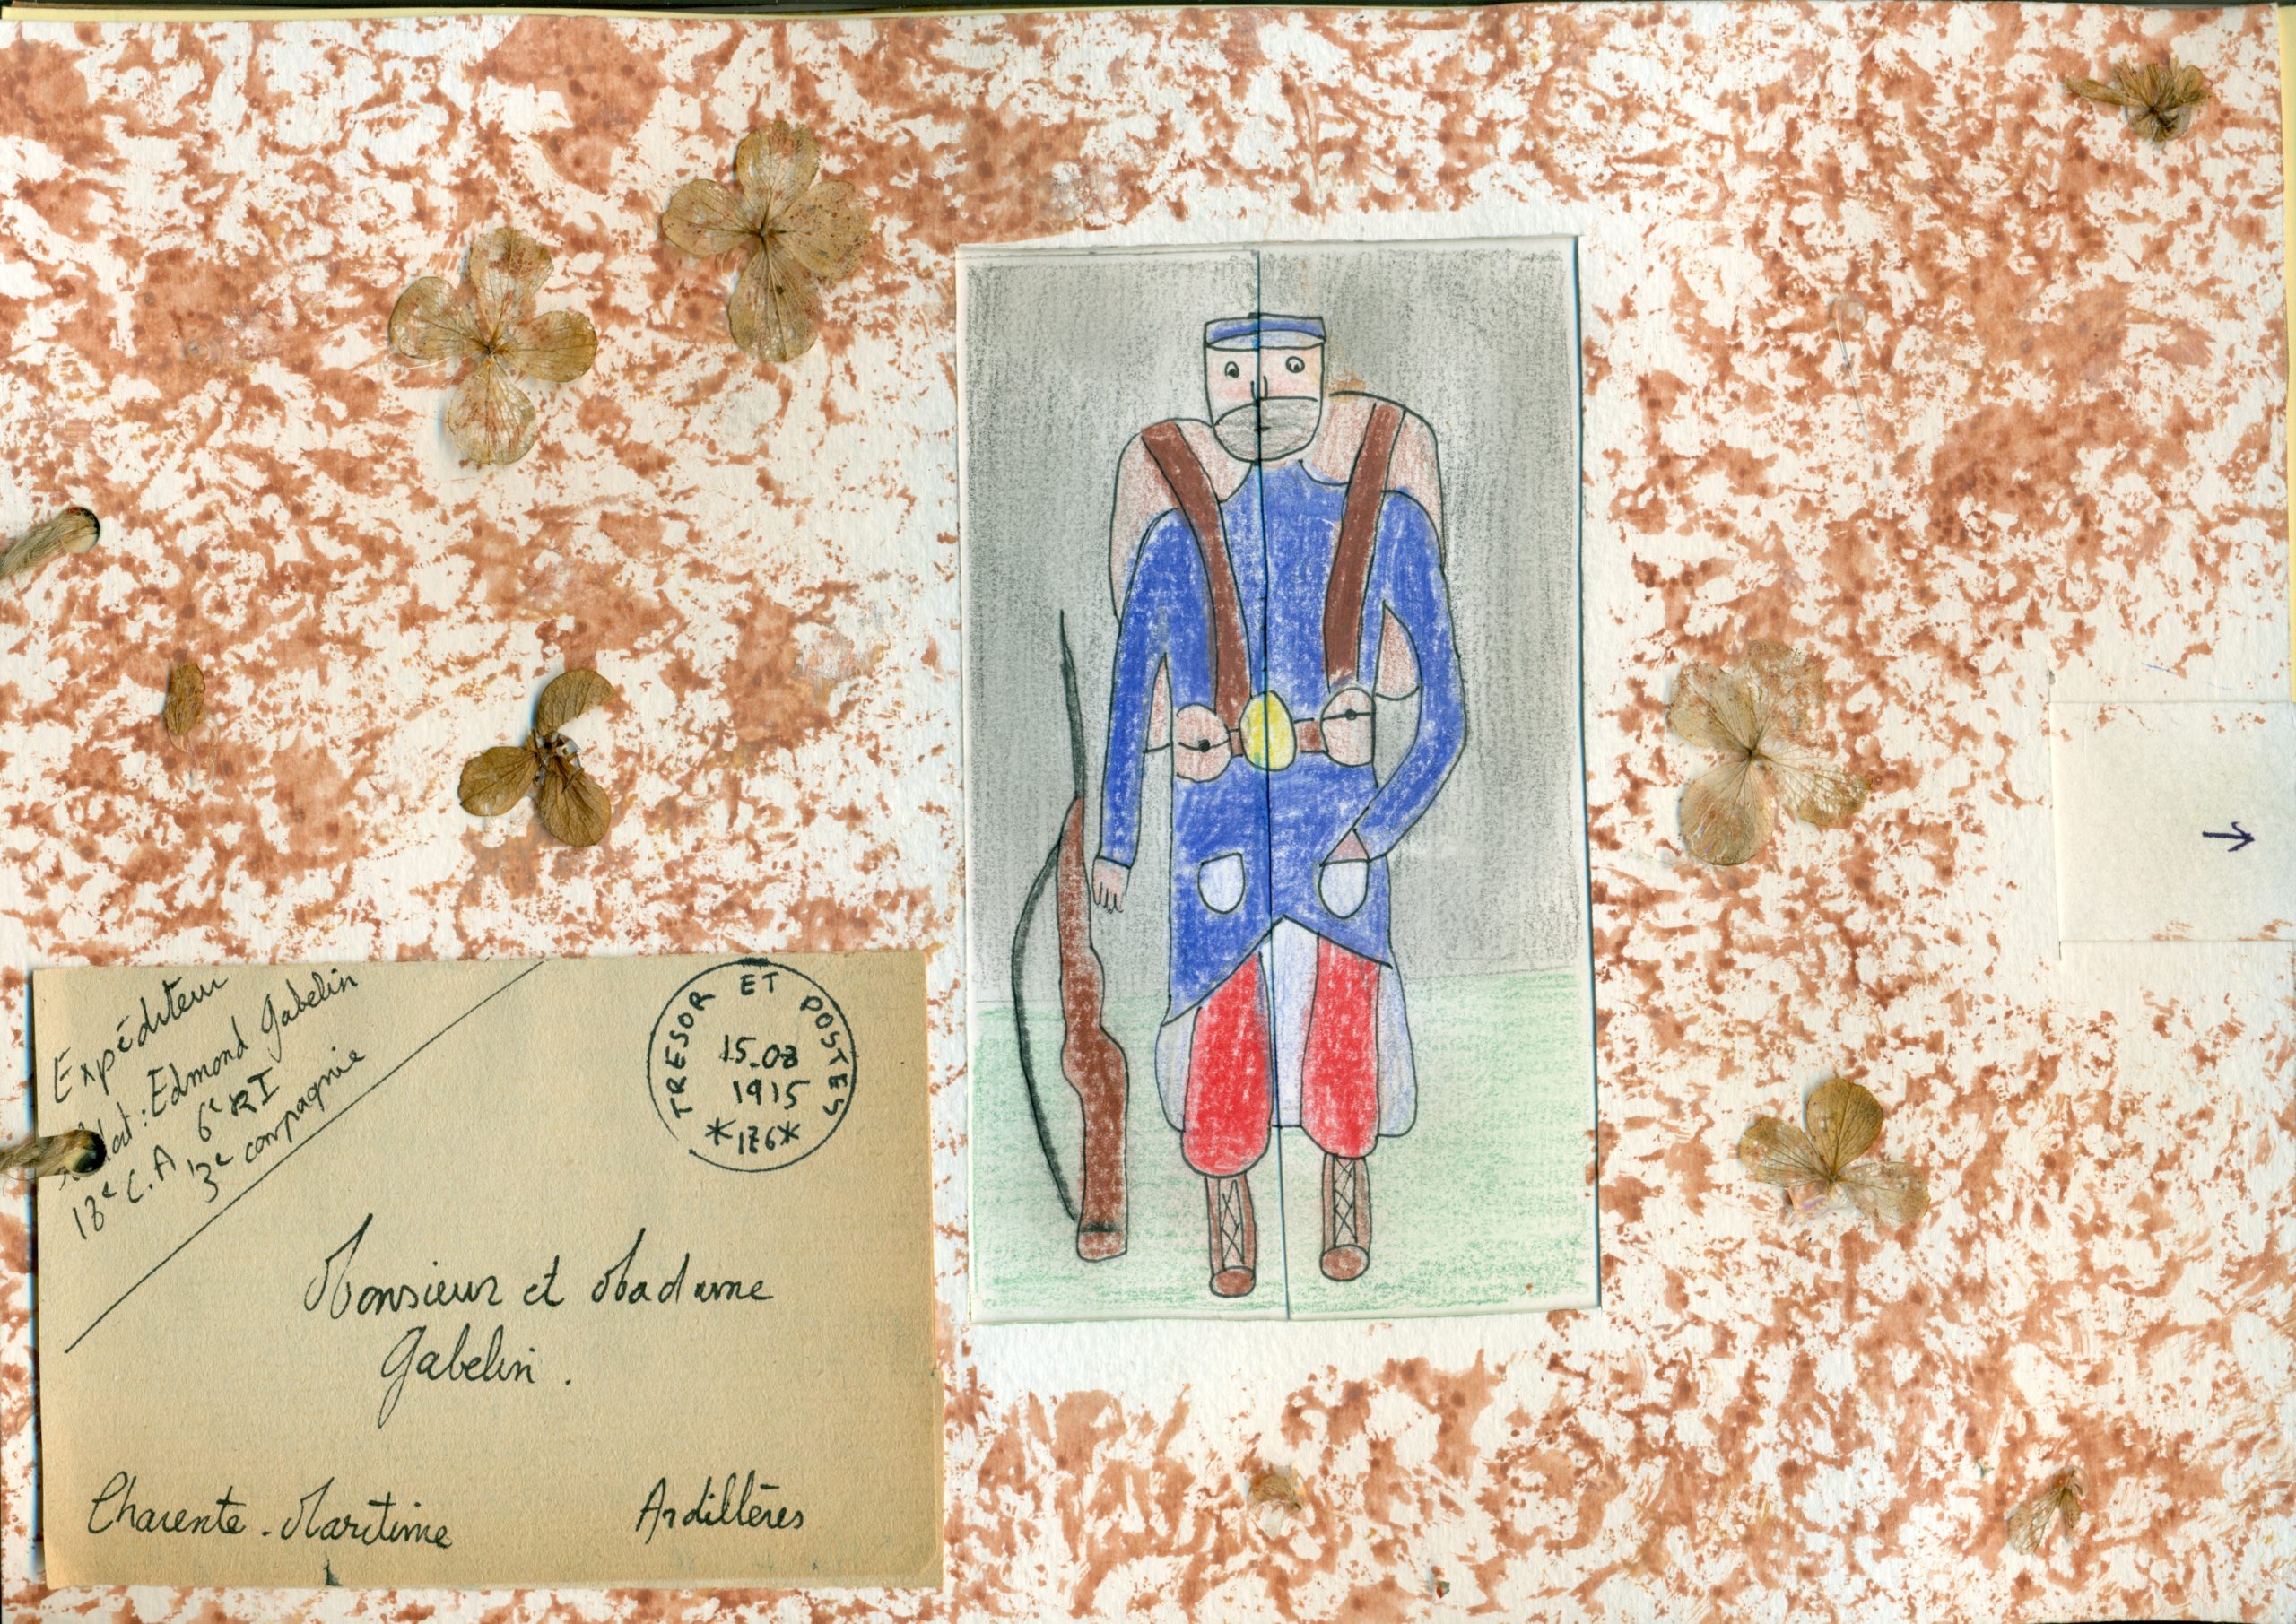 Expéditeur
Edmond Gabelin
18e C.A 6e RI
3e compagnie
TRESOR ET POSTES
15.08
1915
*176*
Monsieur et Madame
Gabelin.
Charente-Maritime Ardillères
→